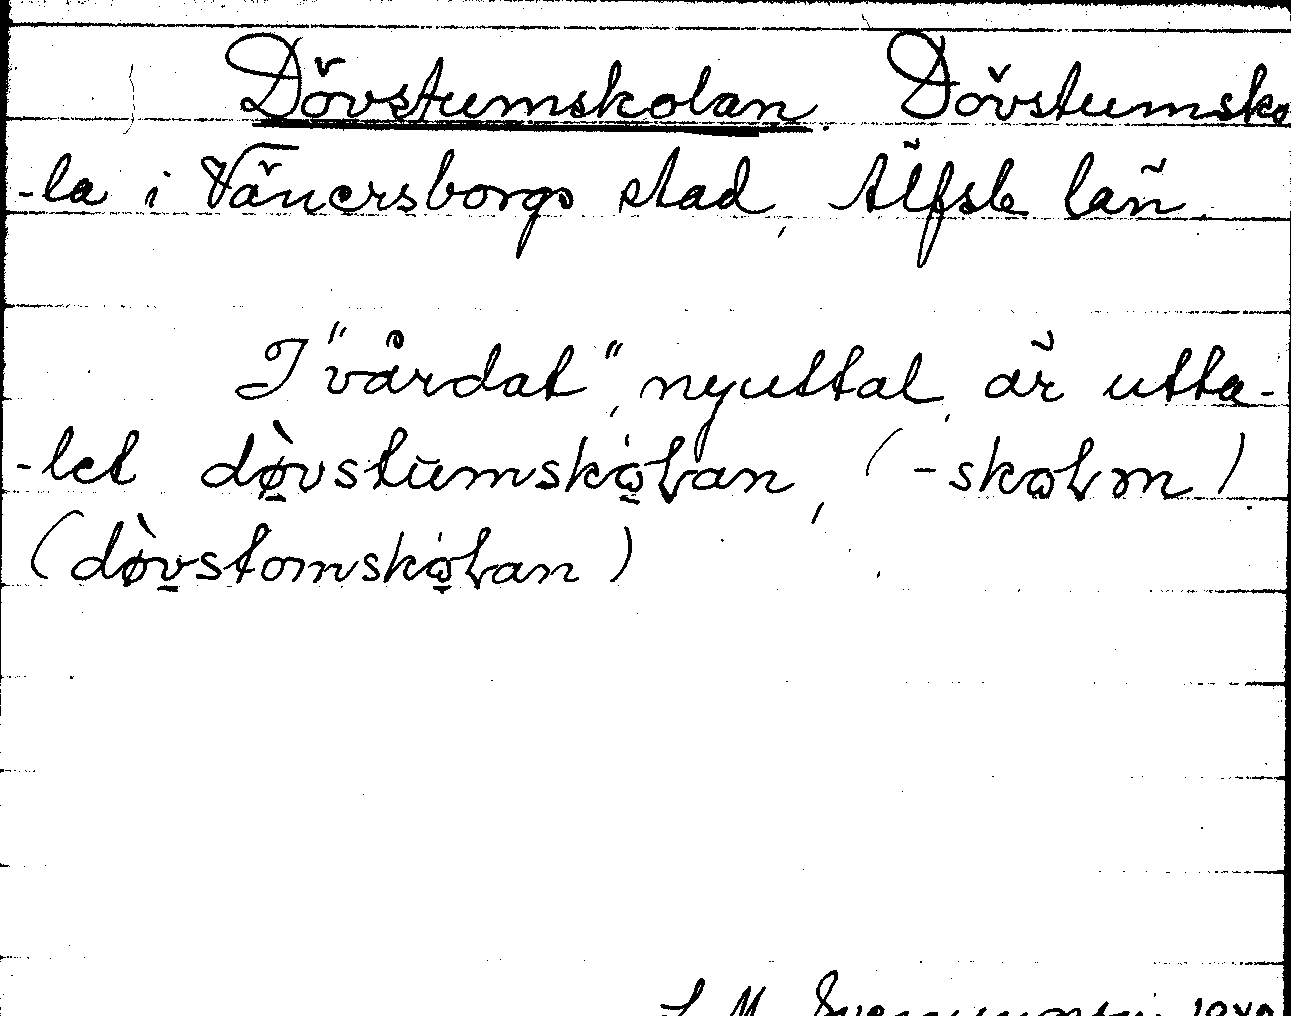 Dövstumskolan. Dövstumsko
-la i Vänersborgs stad, Älfsb län.
I "vårdat", nyuttal, är utta-
-let dø̀vstumskolan, (-skolm)
(dø̀vstomskolan)